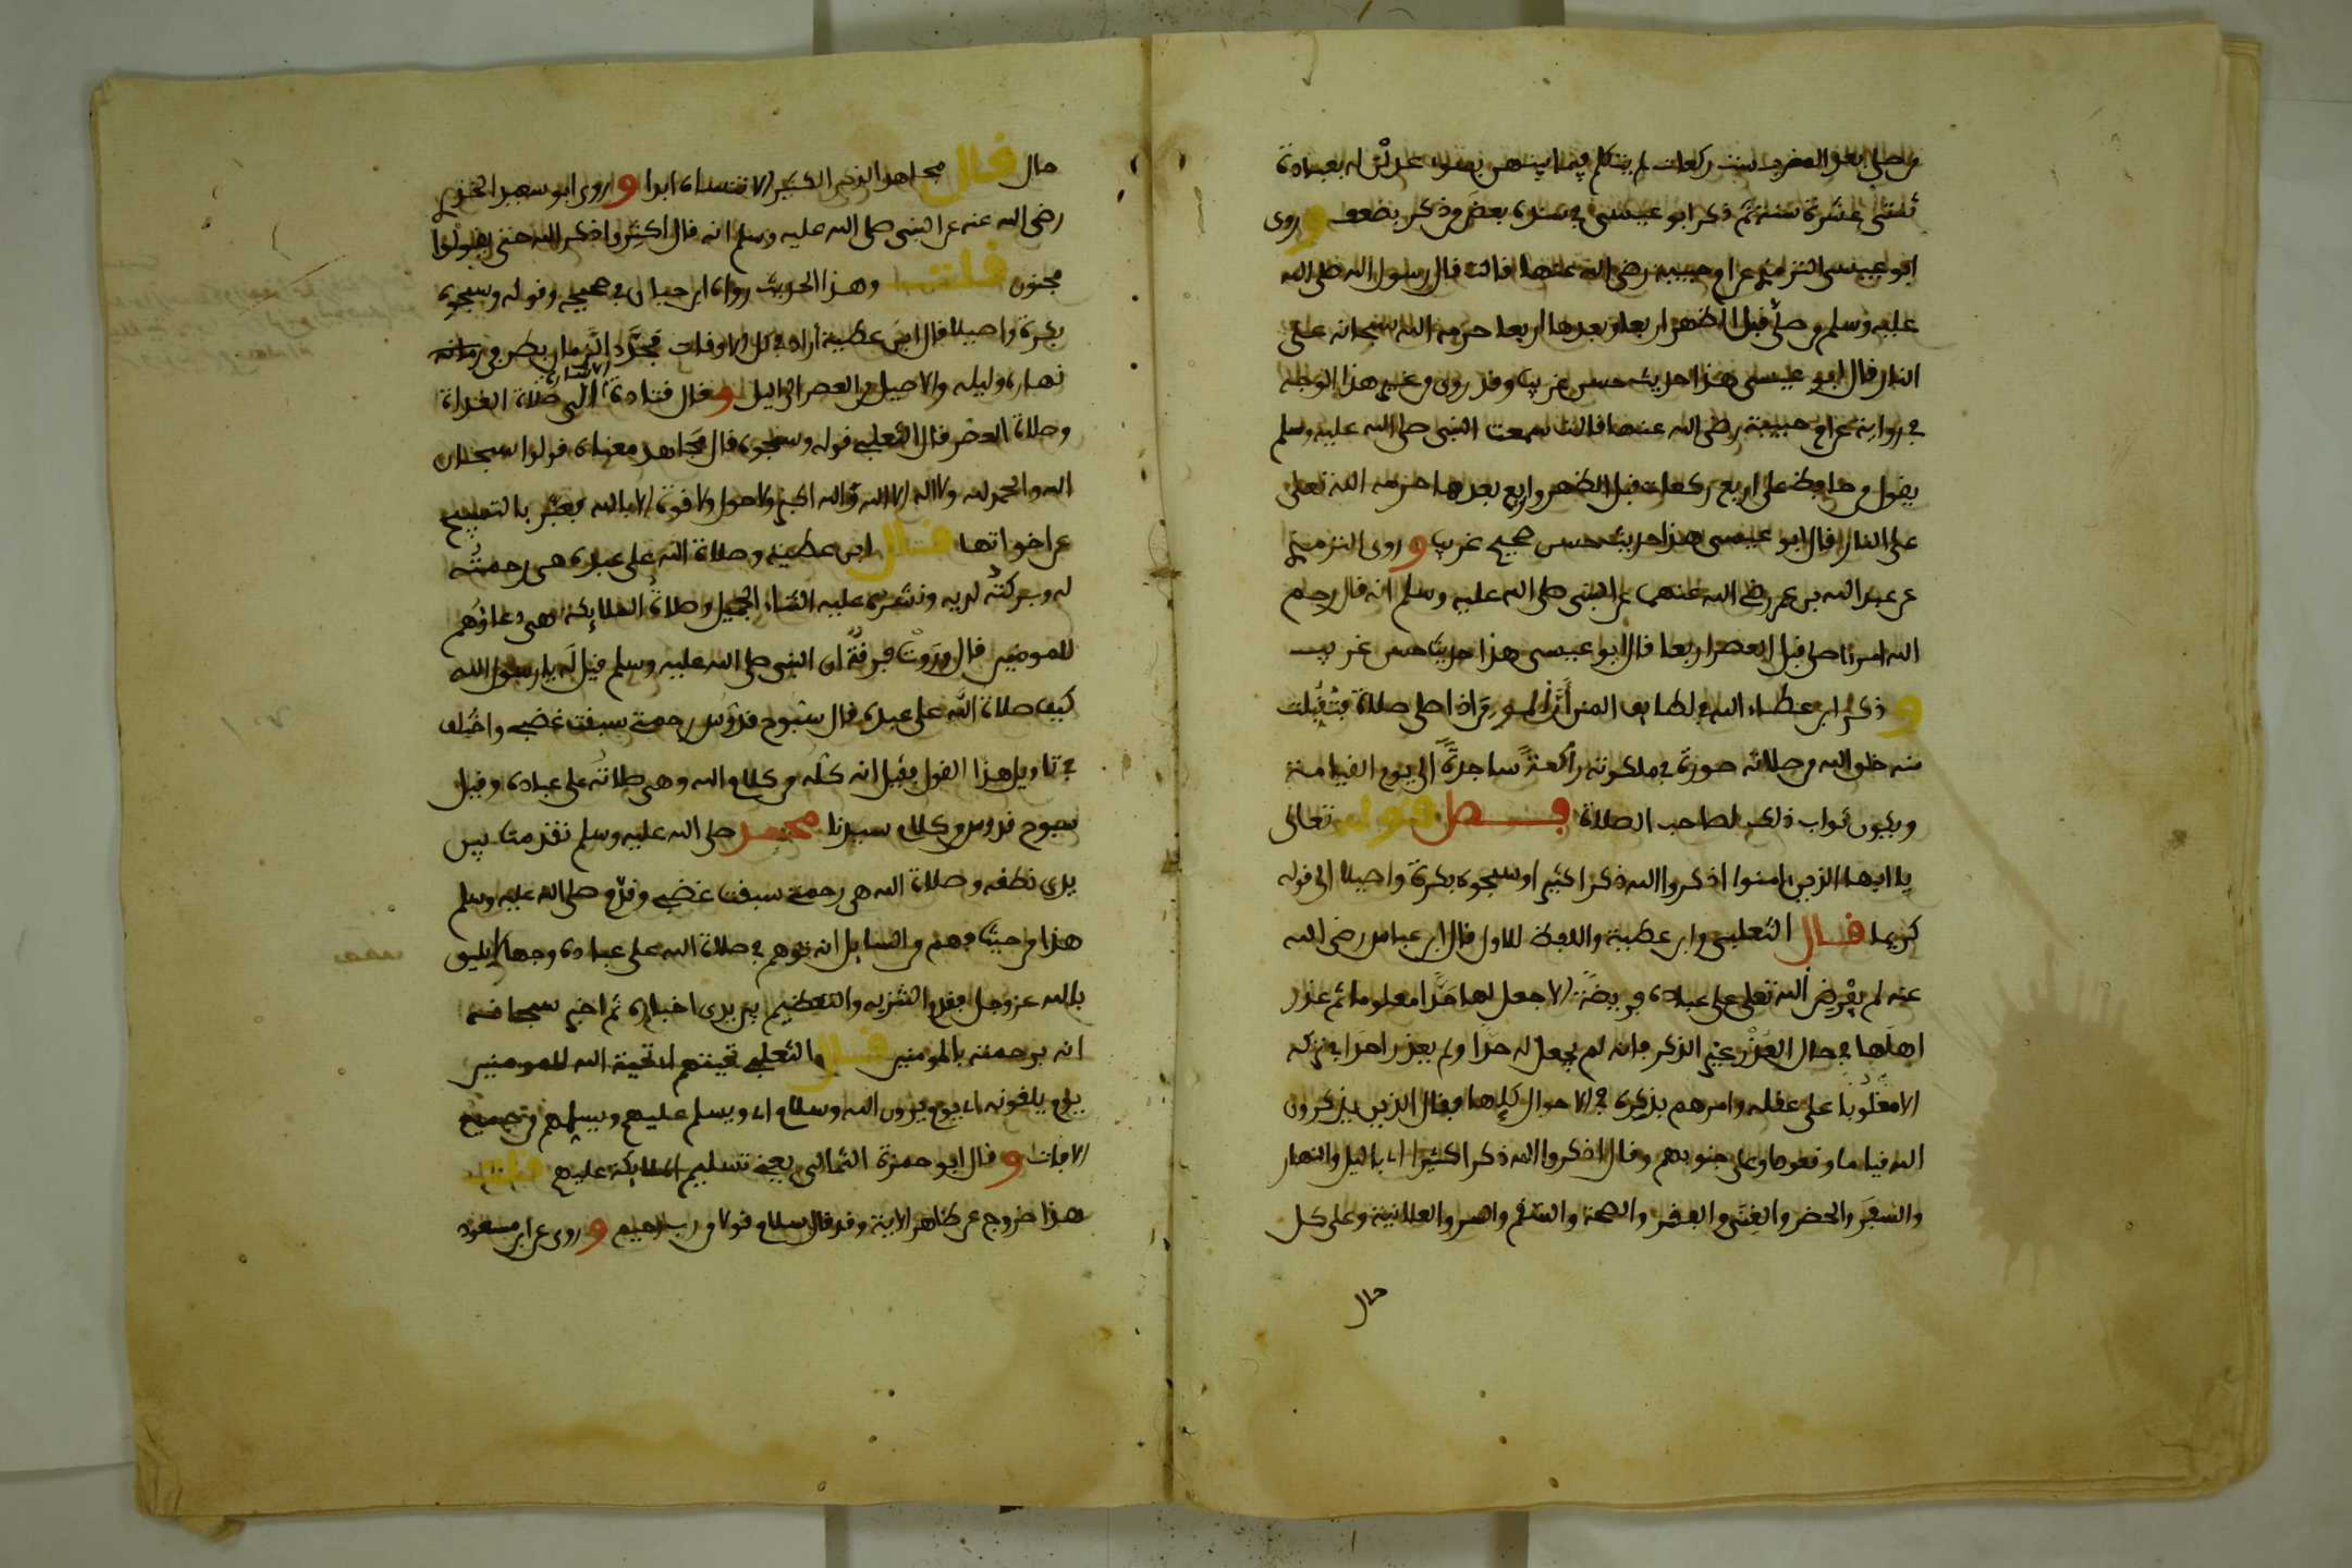 من صلى بعد المغرب ست ركعات لم يتكلم فيما بينهن بسوء عدلن له بعبادة
ثنتى عشرة سنة ثم ذكر ابو عيسى في سنده بعض من ذكر بضعف وروى
ابو عيسى الترمذي عن ام حبيبة رضى الله عنها قالت قال رسول الله صلى الله
عليه وسلم من صلى قبل الظهر اربعا وبعدها اربعا حرمه الله سبحانه على
النار قال ابو عيسى هذا حديث حسن غريب وقد روى من غير هذا الوجه
في رواية عن ام حبيبة رضى الله عنها قالت سمعت النبى صلى الله عليه وسلم
يقول من حافظ على اربع ركعات قبل الظهر واربع بعدها حرمه الله تعلى
على النار قال ابو عيسى هذا حديث حسن صحيح غريب وروى الترمذي
عن عبد الله بن عمر رضي الله عنهما عن النبى صلى الله عليه وسلم انه قال رحم
الله امرءا صلى قبل العصر اربعا قال ابو عيسى هذا حديث حسن غريب
وذكر ابن عطاء الله في لطايف المنن أن المومن اذا صلى صلاة فتُقُبلت
منه خلق الله من صلاته صورة في ملكوته راكعة ساجدة الى يوم القيامة
ويكون ثواب ذلك لصاحب الصلاة فصل قوله تعالى
يا ايها الذين امنوا اذكروا الله ذكرا كثيرا وسبحوه بكرة واصيلا الى قوله
كريما قال الثعلبى وابن عطية واللفظ للاول قال ابن عباس رضى الله
عنه لم يفرض الله تعلى على عباده فريضة الا جعل لها حدا معلوما ثم عذر
اهلها في حال العذر غير الذكر فانه لم يجعل له حدا ولم يعذر احدا في تركه
الا مغلوبا على عقله وامرهم بذكره في الاحوال كلها فقال الذين يذكرون
الله قياما وقعودا وعلى جنوبهم وقال اذكروا الله ذكرا كثيرا اى باليل والنهار
والسفر والحضر والغنى والفقر والصحة والسقم والسر والعلانية وعلى كل
حال
حال قال مجاهد الذكر الكثير الا تنساه ابدا وروى ابو سعيد الخدري
رضى الله عنه عن النبى صلى الله عليه وسلم انه قال اكثروا ذكر الله حتى يقولوا
مجنون قلت وهذا الحديث رواه ابن حبان في صحيحه وقوله وسبحوه
بكرة واصيلا قال ابن عطية اراد في كل الاوقات فحدد الزمان بطرفى زمانه
نهاره وليله والاصيل من العصر الى اليل وقال قتادة الاشارة الى صلاة الغداة
وصلاة العصر قال الثعلبي قوله وسبحوه قال مجاهد معناه قولوا سبحان
الله والحمد لله ولا اله الا الله والله اكبر ولا حول ولا قوة الا بالله فعبر بالتسبيح
عن اخواتها قال ابن عطية وصلاة الله على عبده هى رحمته
له وبركته لديه ونشره عليه الثناء الجميل وصلاة الملايكة هى دعاؤهم
للمومنين قال وروت فرقة ان النبى صلى الله عليه وسلم قيل له يا رسول الله
كيف صلاة الله على عبده قال سبوح قدوس رحمتي سبقت غضبي واختلف
في تاويل هذا القول فقيل انه كله من كلام الله وهى صلاته على عباده وقيل
سبوح قدوس من كلام سيدنا محمد صلى الله عليه وسلم تقدمت بين
يدى نطقه وصلاة الله هى رحمتي سبقت غضبي وقدم صلى الله عليه وسلم
هذا من حيث فهم من السايل انه توهم في صلاة الله على عباده وجها لا يليق
بالله عز وجل فقدم التنزيه والتعظيم بين يدى اخباره ثم اخبر سبحانه
انه برحمته بالمومنين قال الثعلبي تحيتهم اى تحية الله للمومنين
يوم يلقونه اى يوم يرون الله وسلام اى ويسلم عليهم ويسلمهم من جميع
الافات وقال ابو حمزة الثمالى يعني تسليم الملايكة عليهم قلت
هذا خروج عن ظاهر الاية وقد قال سلام قولا من رب رحيم وروى عن ابن مسعود